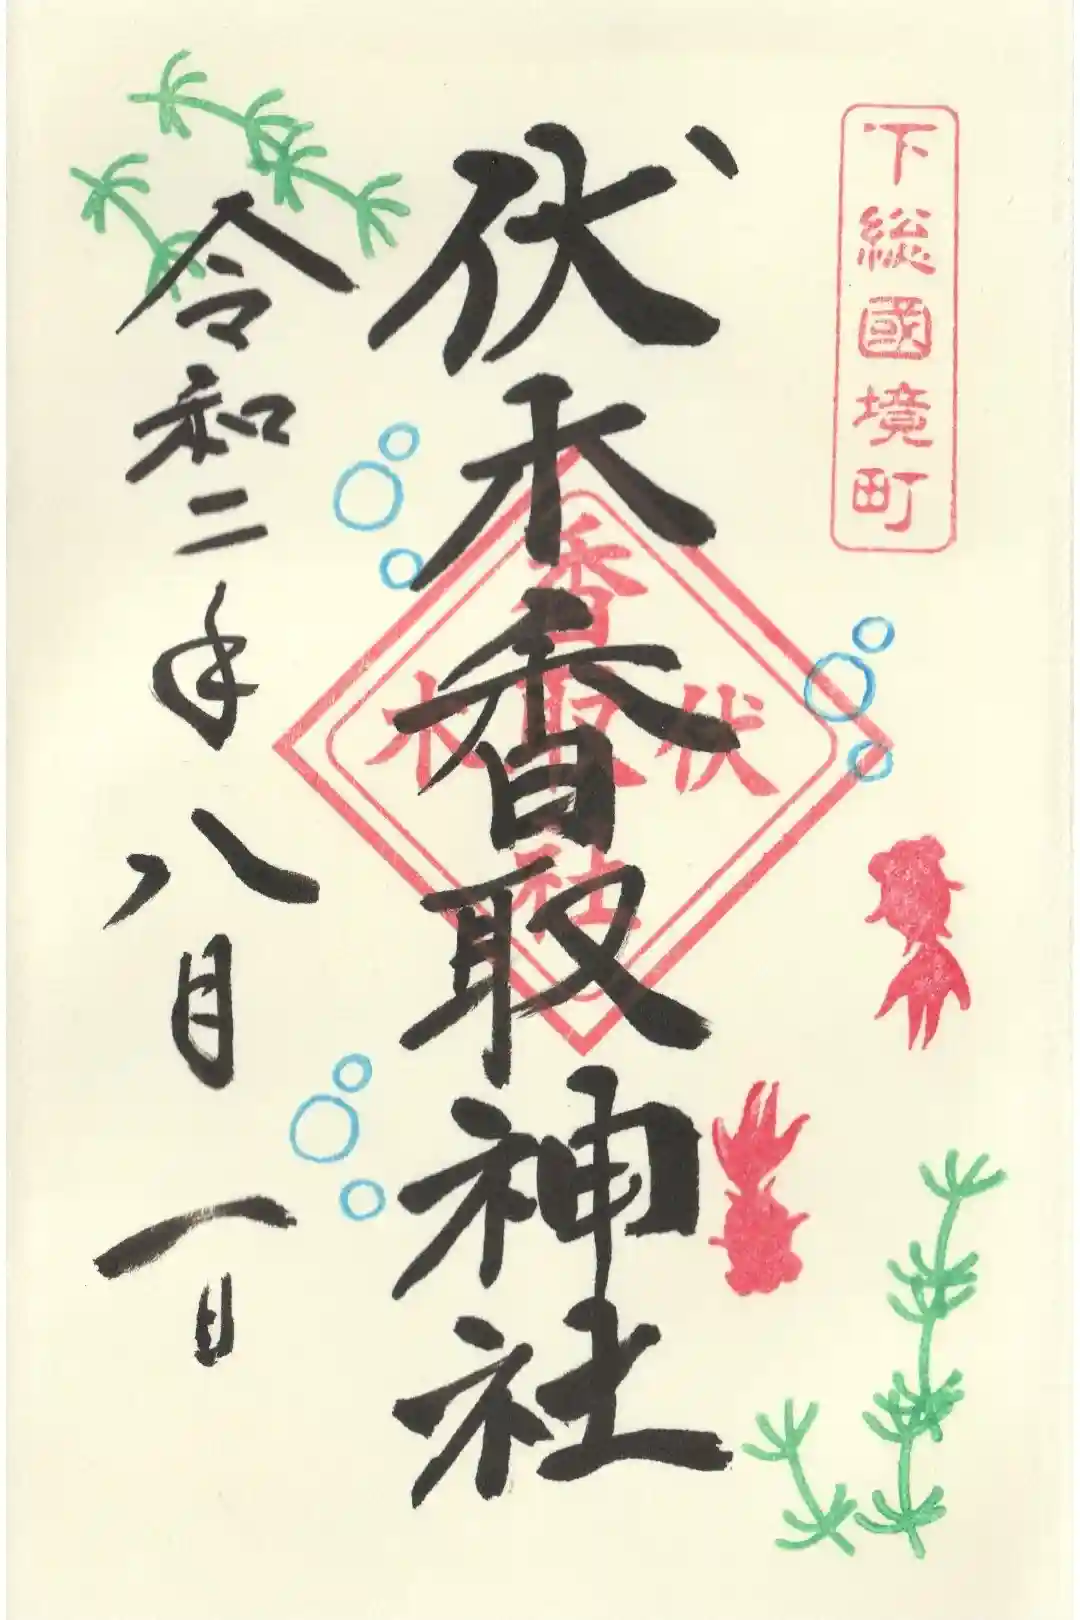 下総國境町
伏木香取神社
香取
伏木
社
令和二年八月一日